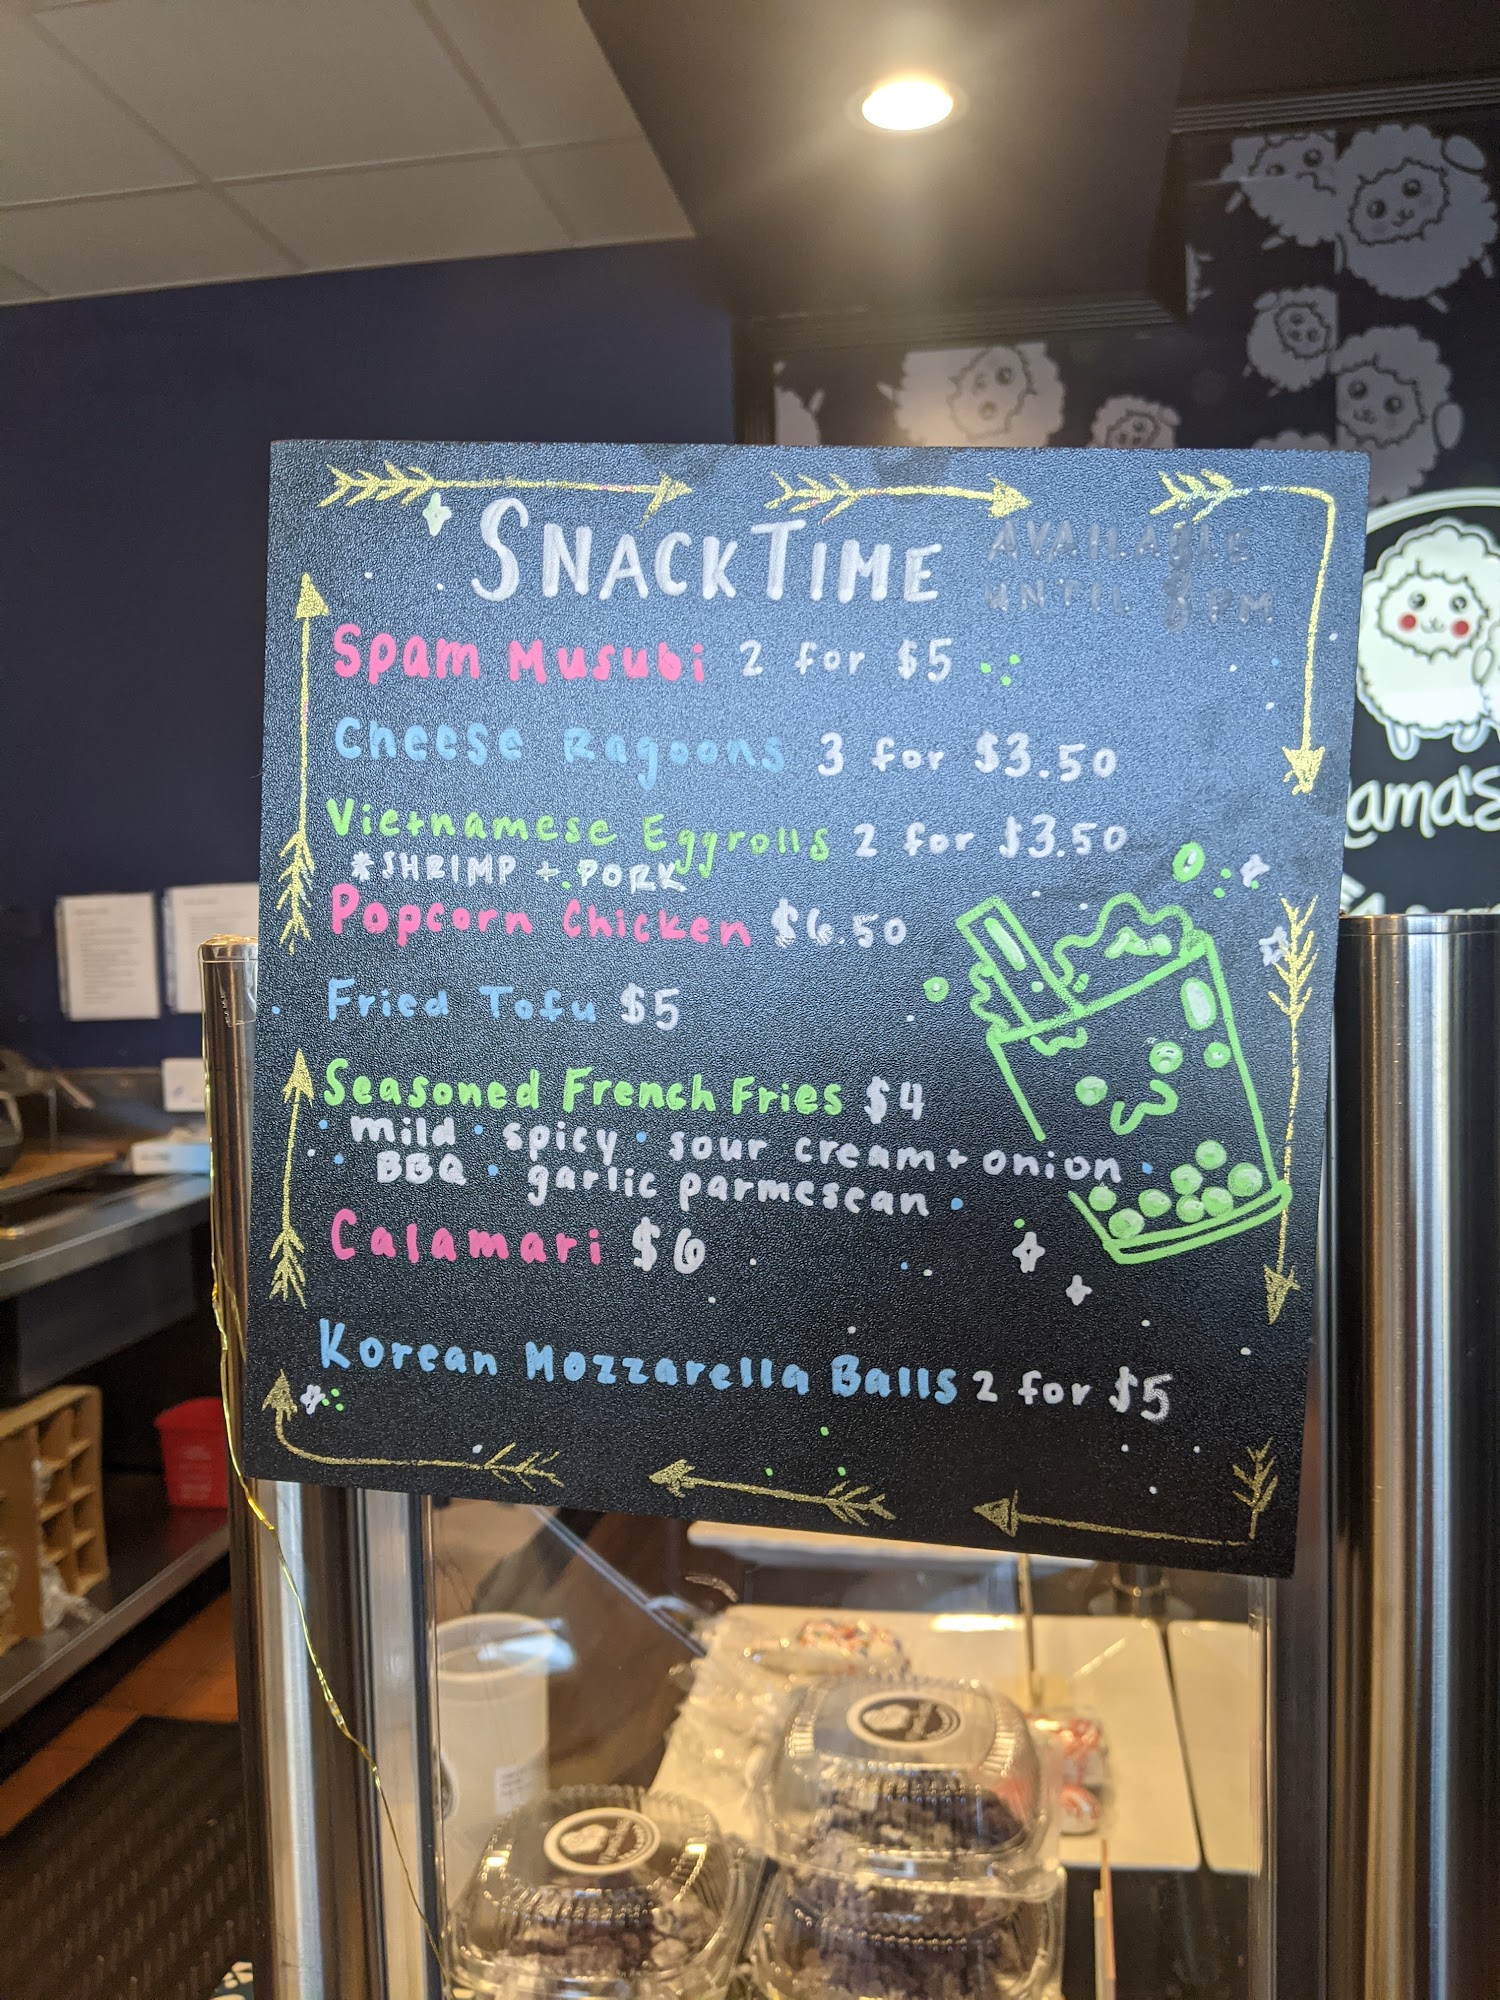 SNACKTIME
AVAILABLE
UNTIL 8PM
Spam Musubi 2 for $5
Cheese Ragoons 3 for $3.50
Vietnamese Eggrolls 2 for $3.50
*SHRIMP + PORK
Popcorn Chicken $6.50
Fried Tofu $5
Seasoned French Fries $4
• mild • spicy • sour cream + onion •
• BBQ • garlic parmesean •
Calamari $6
Korean Mozzarella Balls 2 for $5